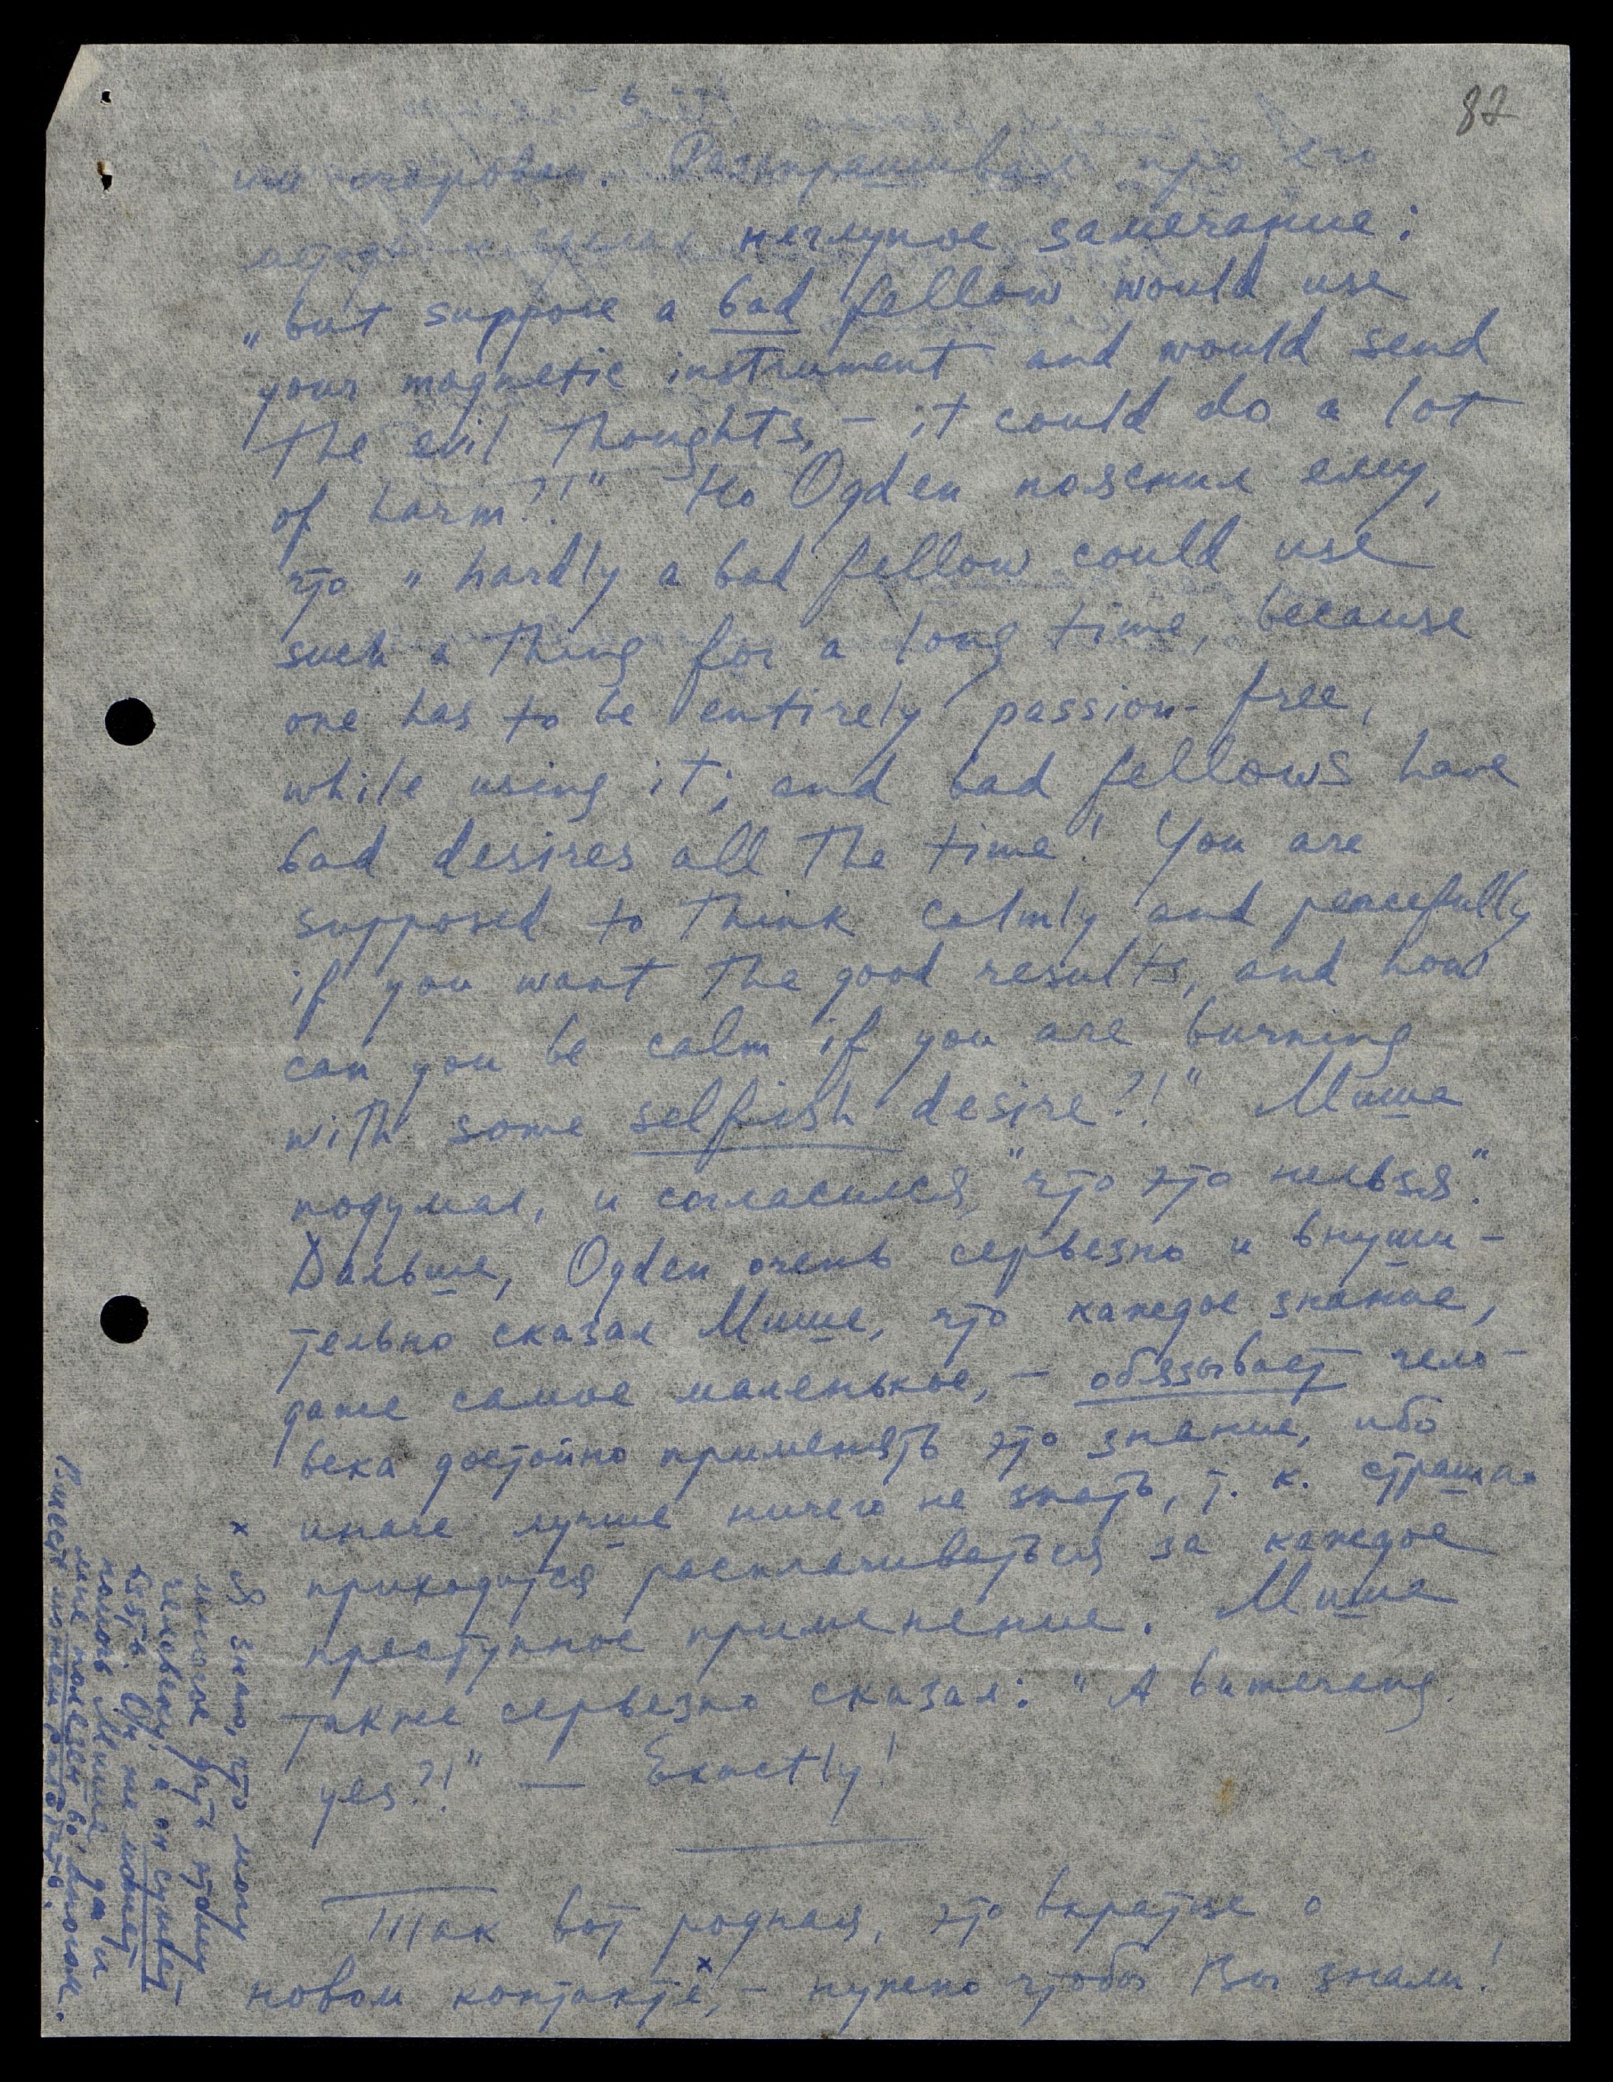 82
очарован. Разспрашивал про его
неглупое замечание:
„but suppose a bad fellow would use
your magnetic instrument and would send
the evil thoughts, – it could do a lot
of harm?!" Но Ogden пояснил ему,
что „hardly a bad fellow could use
such a thing for a long time, because
one has to be entirely passion-free,
while using it; and bad fellows have
bad desires all the time". You are
supposed to think calmly and peacefully
if you want the good results, and how
can you be calm if you are burning
with some selfish desire?!" Миша
подумал, и согласился, "что это нельзя".
Дальше, Ogden очень серьезно и внуши-
тельно сказал Мише, что каждое знание,
даже самое маленькое, – обязывает чело-
века достойно применять это знание, ибо
иначе лучше ничего не знать, т. к. страшно
приходится расплачиваться за каждое
преступное применение. Миша
также серьезно сказал: "A bumerang
yes?!" — Exactly!
Так вот родная, это вкратце о
новом контакте,ˣ – нужно чтобы Вы знали!
x Я знаю, что могу
многое дать этому
человеку, а он сумеет
взять. Он же может
помочь Мише, да и
мне полезен во многом.
Вместе можем работать.